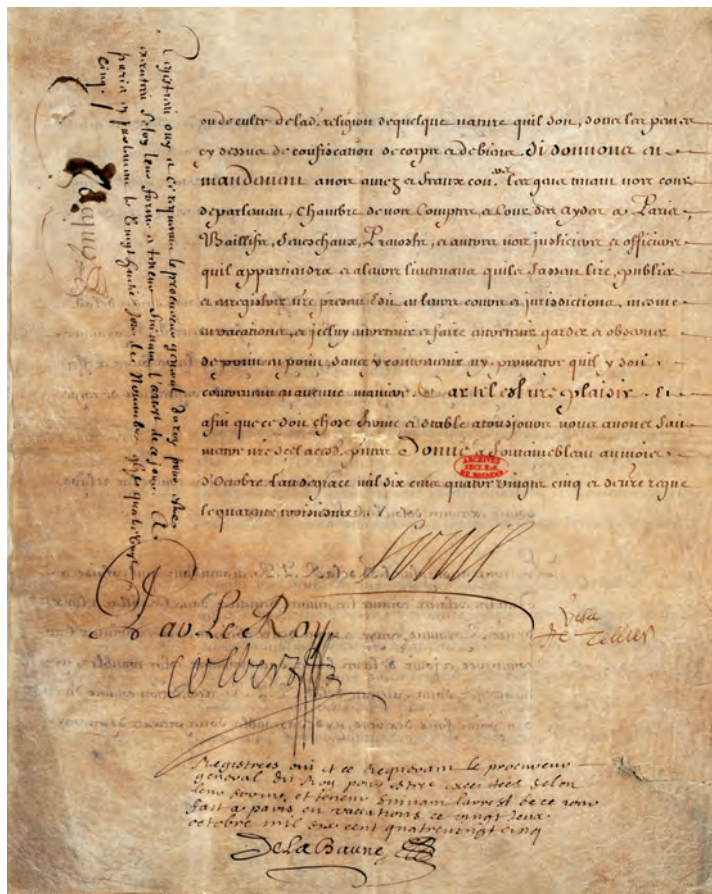 Registrées ouy et ce requerant le procureur général du roy pour estre
executées selon leur forme et teneur suivant l'arrest de ce jour. A
paris en parlement le vingt deux jour de Novembre quatre vingt
cinq.
ou de culte de lad. religion de quelque nature quil soit, soubs les peines
cy dessus de confiscation de corps et de biens. Si donnons en
mandement a nos amez et feaux con.ers les gens tenans nostre cour
de parlement, Chambre de nos Comptes et Cour des Aydes a Paris
Baillifs, Seneschaux, Prevosts, et autres nos justiciers et officiers
quil appartiendra et a leurs lieutenans quils fassent lire, publier
et enregistrer nre present Edit en leurs cours et jurisdictions, mesme
en vacations, et jceluy entretenir et faire entretenir garder et observer
de point en point, sans y contrevenir ny permettre quil y soit
contrevenu en aucune maniere. Car tel est nre plaisir. Et
afin que ce soit chose ferme et stable a tousjours nous avons fait
mettre nre scel a cesd. pntes. Donné a Fontainebleau au mois
d'Octobre l'an de grace mil six cens quatre vingts cinq et de nre regne
le quarante troisiesme
ARCHIVES
Louis
Par Le Roy
Colbert
Visa
Le Tellier
Registrées oui et ce requerant le procureur
général du Roy pour estre executées selon
leur forme et teneur suivant larrest de ce jour
fait a paris en vacations ce vingt deux
octobre mil six cent quatrevingt cinq
De la Baune